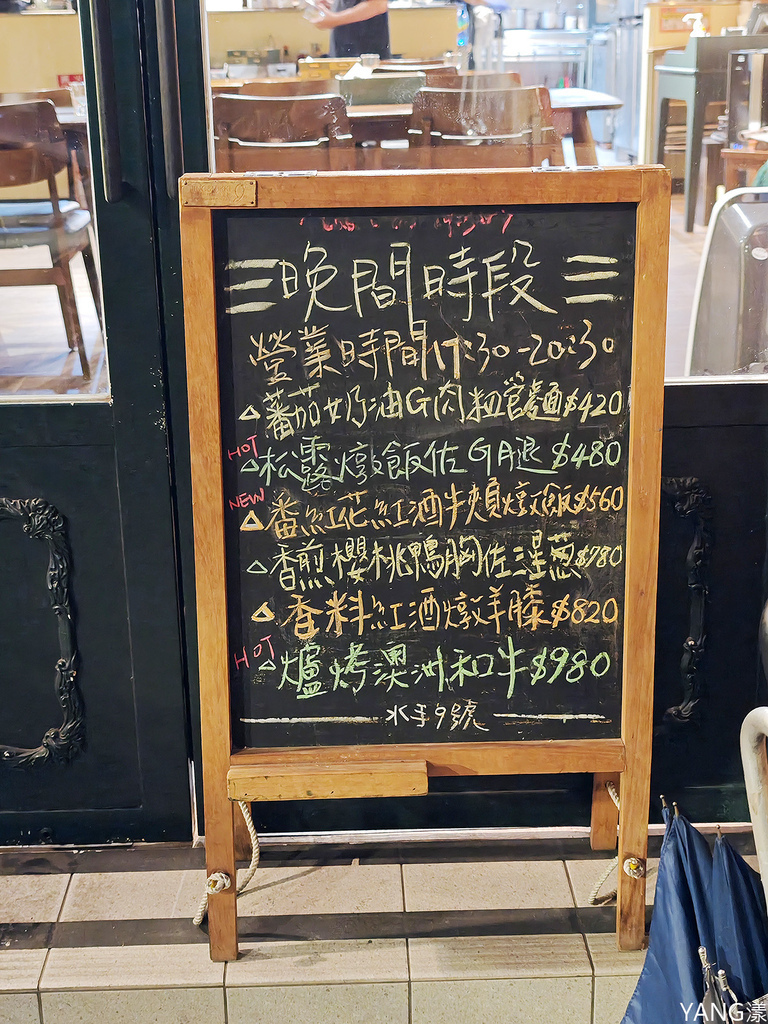 晚間時段
營業時間17:30-20:30
△蕃茄奶油G肉粗管麵$420
HOT
△松露燉飯佐GA腿$480
NEW
△番紅花紅酒牛頰燉飯$560
△香煎櫻桃鴨胸佐溫蔥$780
△香料紅酒燉羊膝$820
HOT
△爐烤澳洲和牛$980
水手9號
YANG漾